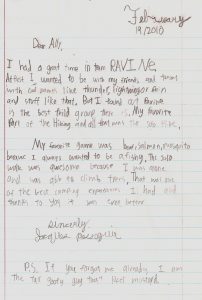 February
19/2010
Dear Ally,
I had a good time in team RAVINE.
At first I wanted to be with my friends and teams
with cool names like thunder, lightning or
and stuff like that. But I found out Ravine
is the best field group there is. My favorite
part of the hiking and all that was the solo hike.
My favorite game was bear, salmon, mosquito
because I always wanted to be a frog. The solo
walk was awesome because I was alone
and was able to climb trees. That was one
of the best camping experiences I had and
thanks to you it was even better
sincerely,
P.S. If you forgot me already I am
the guy that